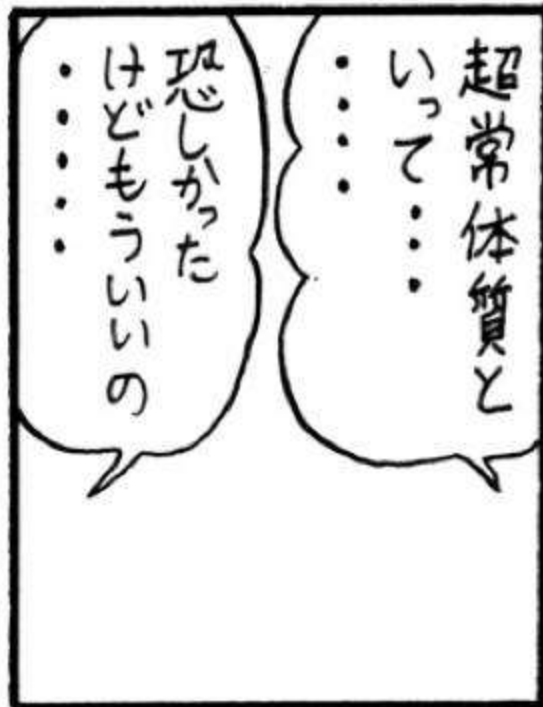 超常体質と
いって・・・
・・・・
恐しかった
けどもういいの
・・・・・